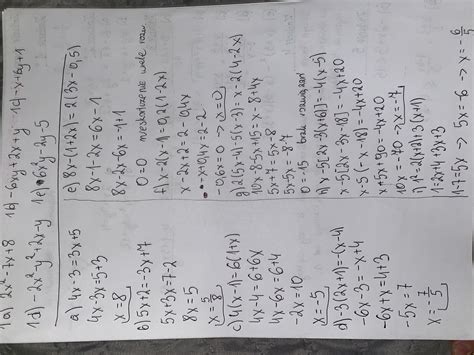 1a) 2x²-7x+8  1b) -6xy+2x-y  1c) -x+6y+1
1d) -2x²-y²+2x-y  1e) 6x²y-2y-5
a) 4x-3=3x+5
4x-3x=5+3
x=8
b) 5x+2=-3x+7
5x+3x=7-2
8x=5
x=5/8
c) 4(x-1)=6(1+x)
4x-4=6+6x
4x-6x=6+4
-2x=10
x=-5
d) -3(2x+1)=(x-4)
-6x-3=-x+4
-6x+x=4+3
-5x=7
x=-7/5
e) 8x-(1+2x)=2(3x-0,5)
8x-1-2x=6x-1
8x-2x-6x=-1+1
0=0
f) x-2(x-1)=0,2(1-2x)
x-2x+2=2-0,4x
-x+0,4x=2-2
-0,6x=0 -> x=0
g) 2(5x-4)-5(x-3)=x-2(4-2x)
10x-8-5x+15=x-8+4x
5x+7=5x-8
5x-5x=-8-7
0=-15 brak rozwiązań
h) x-5[2x-3(x+6)]=-4(x-5)
x-5[2x-3x-18]=-4x+20
x-5(-x-18)=-4x+20
x+5x+90=-4x+20
10x=-70 -> x=-7
1=2x+4+3x+3
1-7=5x -> 5x=-6 -> x=-6/5